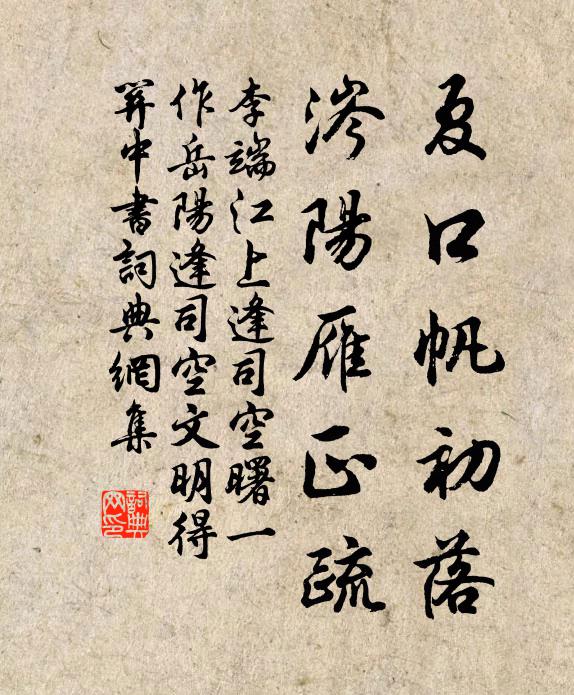 夏口帆初落
涔陽雁正疏
李端江上逢司空曙一
作岳陽逢司空文明得
算中書詞典網集
詞典
網印